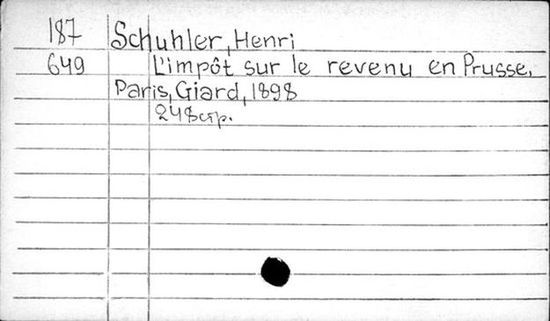 187 Schuhler, Henri
649 L'impôt sur le revenu en Prusse.
Paris, Giard, 1898
248